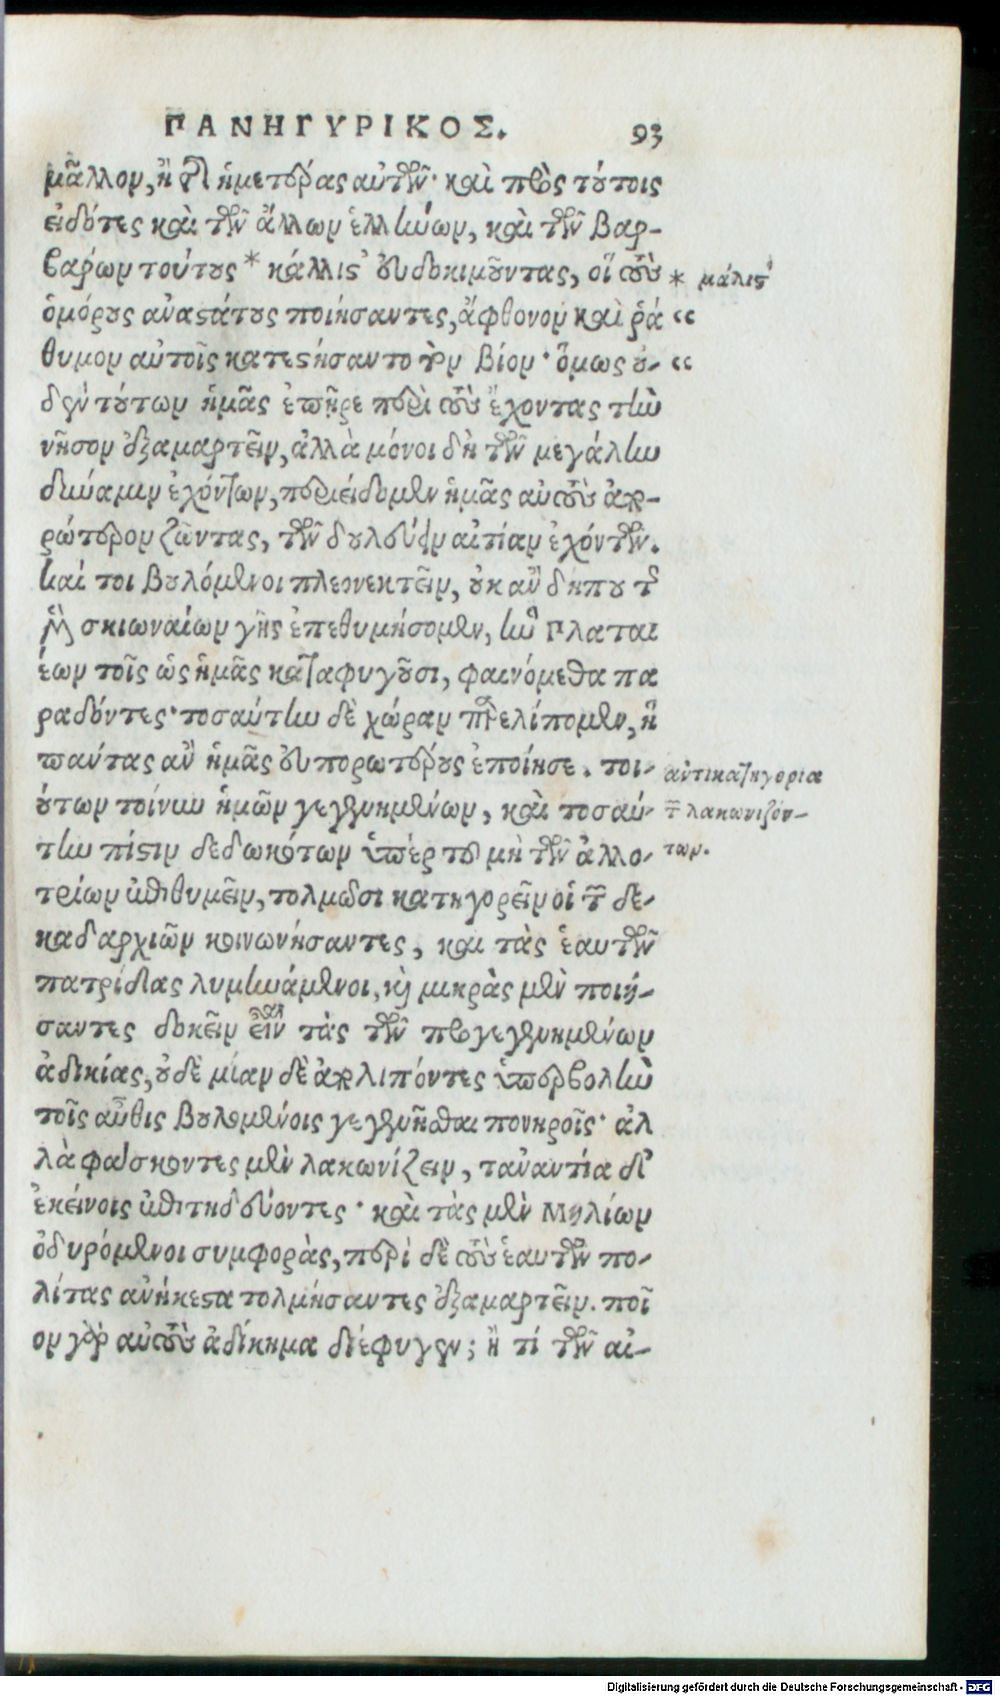 ΠΑΝΗΓΥΡΙΚΟΣ. 93
μᾶλλον, ἢ τῆς ἡμετέρας αὐτῶν· καὶ πρὸς τούτοις
εἰδότες καὶ τῶν ἄλλων ἑλλήνων, καὶ τῶν βαρ-
βάρων τούτους * κάλλιστ' εὐδοκιμοῦντας, οἵ τοὺς * μάλιστ'
ὁμόρους ἀναστάτους ποιήσαντες, ἄφθονον καὶ ῥά “
θυμον αὑτοῖς κατεστήσαντο τὸν βίον· ὅμως οὐ- “
δὲν τούτων ἡμᾶς ἐπῆρε περὶ τοὺς ἔχοντας τὴν
νῆσον ἐξαμαρτεῖν, ἀλλὰ μόνοι δὴ τῶν μεγάλην
δύναμιν ἐχόντων, περιείδομεν ἡμᾶς αὐτοὺς ἀπο-
ρώτερον ζῶντας, τῶν δουλεύειν αἰτίαν ἐχόντων.
καί τοι βουλόμενοι πλεονεκτεῖν, οὐκ ἂν δήπου τῆς
μὲν σκιωναίων γῆς ἐπεθυμήσομεν, ἣν Πλαται
έων τοῖς ὡς ἡμᾶς καταφυγοῦσι, φαινόμεθα πα
ραδόντες· τοσαύτην δὲ χώραν παρελίπομεν, ἣ
πάντας ἂν ἡμᾶς εὐπορωτέρους ἐποίησε. τοι-
ούτων τοίνυν ἡμῶν γεγενημένων, καὶ τοσαύ-
την πίστιν δεδωκότων ὑπὲρ τοῦ μὴ τῶν ἀλλο-
τρίων ἐπιθυμεῖν, τολμῶσι κατηγορεῖν οἱ τῶν δε-
καδαρχιῶν κοινωνήσαντες, καὶ τὰς ἑαυτῶν
πατρίδας λυμηνάμενοι, καὶ μικρὰς μὲν ποιή-
σαντες δοκεῖν εἶναι τὰς τῶν προγεγενημένων
ἀδικίας, οὐδὲ μίαν δὲ ἀπολιπόντες ὑπερβολὴν
τοῖς αὖθις βουλομένοις γεγενῆσθαι πονηροῖς· ἀλ
λὰ φάσκοντες μὲν λακωνίζειν, ταναντία δ'
ἐκείνοις ἐπιτηδεύοντες· καὶ τὰς μὲν Μηλίων
ὀδυρόμενοι συμφορὰς, περὶ δὲ τοὺς ἑαυτῶν πο-
λίτας ἀνήκεστα τολμήσαντες ἐξαμαρτεῖν. ποῖ
ον γὰρ αὐτοὺς ἀδίκημα διέφυγεν; ἢ τί τῶν αἰ-
ἀντικατηγορία
τῶν λακωνιζόν-
των.
Digitalisierung gefördert durch die Deutsche Forschungsgemeinschaft - DFG